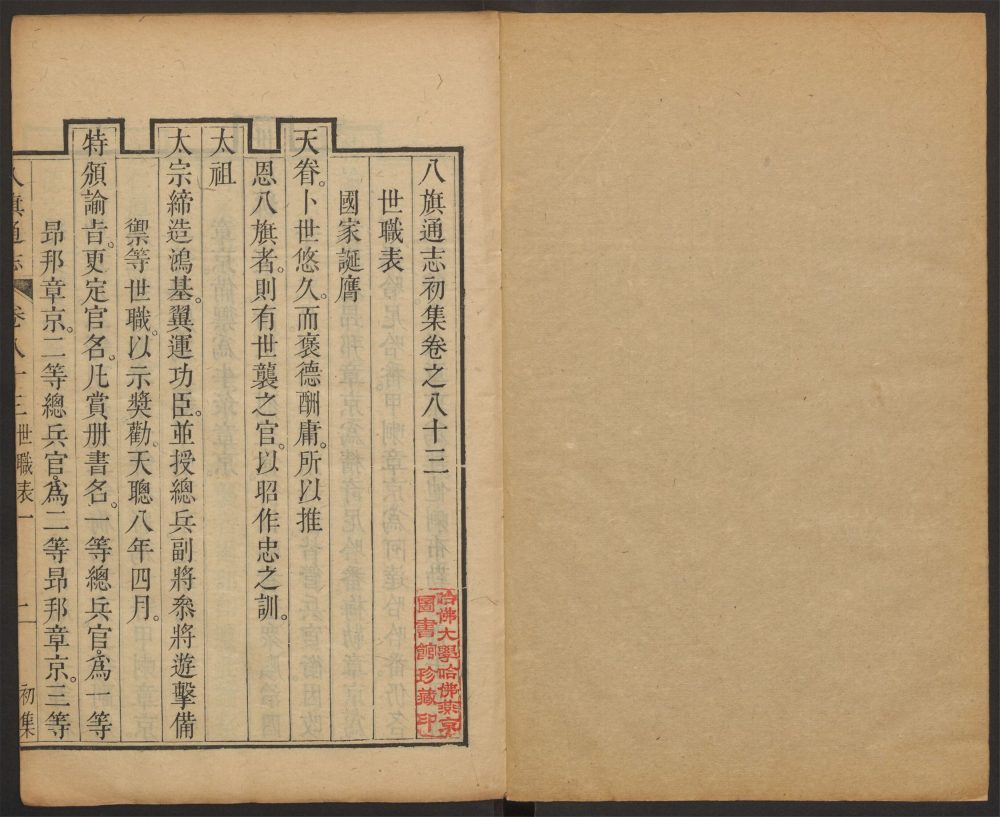 八旗通志初集卷之八十三
世職表
國家誕膺
天眷。卜世悠久。而褒德酬庸。所以推
恩八旗者。則有世襲之官。以昭作忠之訓。
太祖
太宗締造鴻基。翼運功臣。並授總兵副將叅將遊擊備
禦等世職。以示獎勸。天聰八年四月。
特頒諭旨。更定官名。凡賞册書名。一等總兵官。爲一等
昂邦章京。二等總兵官。爲二等昂邦章京。三等
八旗通志 卷八十三 世職表一 一 初集
哈佛大學哈佛燕京
圖書館珍藏印